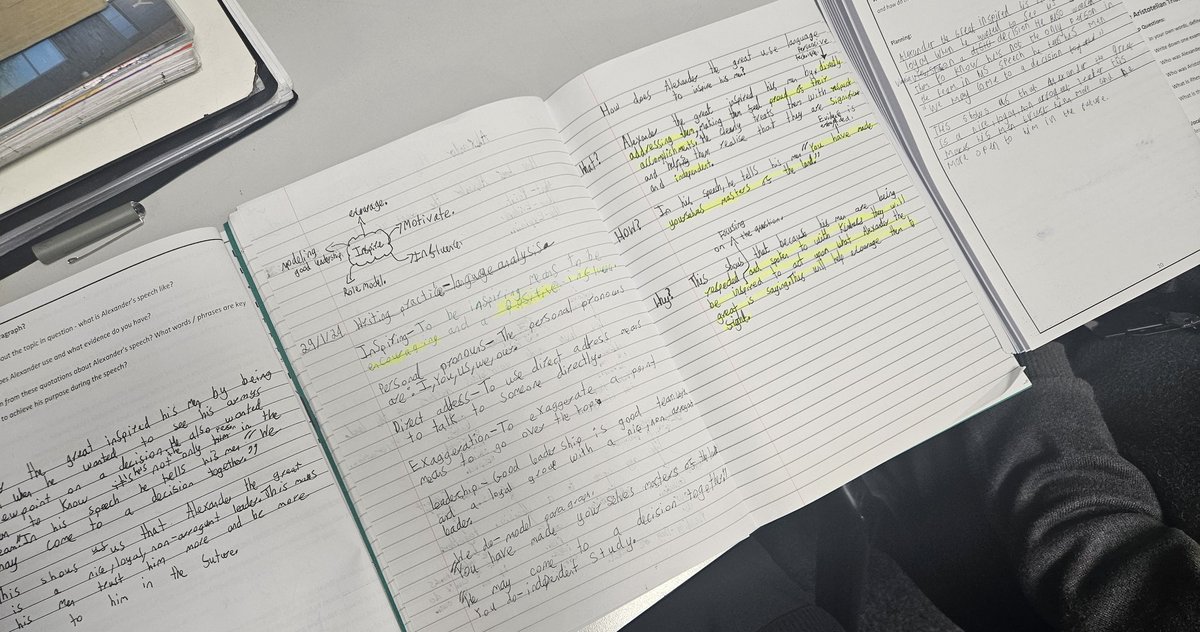 aragraph?
out the topic in question - what is Alexander's speech like?
oes Alexander use and what evidence do you have?
n from these quotations about Alexander's speech? What words / phrases are key
to achieve his purpose during the speech?
the great inspired his men by being
when he wanted to see his armys
viewpoint on a decision. He also wanted
to know its not only him in the
team. In his speech he tells his men "We
may come to a decision together."
This shows us that Alexander the great
is a nice, loyal, non-arrogent leader. This makes
his men trust him more and be more
to him in the future.
encourage.
Motivate.
modeling good leadership
Inspire
Influence
Role model.
29/1/24 Writing practice - language analysis
Inspiring - To be inspiring means to be
encouraging and a positive influence.
Personal pronouns - The personal pronouns
are: I, You, us, we, our.
Direct address - To use direct address means
to talk to someone directly.
Exaggeration - To exaggerate a point
means to go over the top.
Leadership - Good leadership is good teamwork
and a loyal great with a nice, non arrogent
leader.
We do - model paragraph.
"You have made yourselves masters of the land"
"We may come to a decision together"
You do - independent study.
How does Alexander the great use language
to inspire his men?
persuasive
technique
What?
Alexander the great inspired his men by directly
addressing them, making them feel proud of their
accomplishments. He clearly treats them with respect
and helps them realise that they are significant
and independent.
Evidence is
HOW?
In his speech, he tells his men "You have made
yourselves masters of the land"
Focusing
on the question.
Why?
This shows that because his men are being
respected and spoken to with kindness they will
be inspired to act upon what Alexander the
great is saying. This will help encourage them to
fight.
Planning:
Alexander the great inspired his
loyal when he wanted to see
viewpoint on a decision. He also wanted
them to know hes not the only person in
a team. In his speech he tells his men
"We may come to a decision together"
This shows us that Alexander the great
is a nice, loyal, non arrogent leader. This
makes his men trust him more and be
more open to him in the future.
Aristotelian
Questions:
in your own words, define
Write down
Who was Aristotle
What is